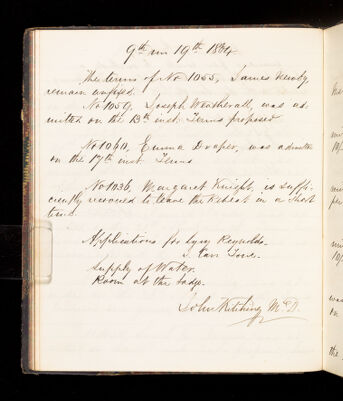 9th mo 19th 1884.
The terms of No 1055, James Newby
remain unfixed.
No 1059, Joseph Weatherall, was ad-
mitted on the 13th inst. Terms proposed
No 1060, Emma Draper, was admitted
on the 17th inst. Terms
No 1036, Margaret Knight, is suffi-
ciently recovered to leave the Retreat in a short
time.
Applications for Lucy Reynolds.
Supply of Water.
Room at the Lodge.
John Kitching M.D.